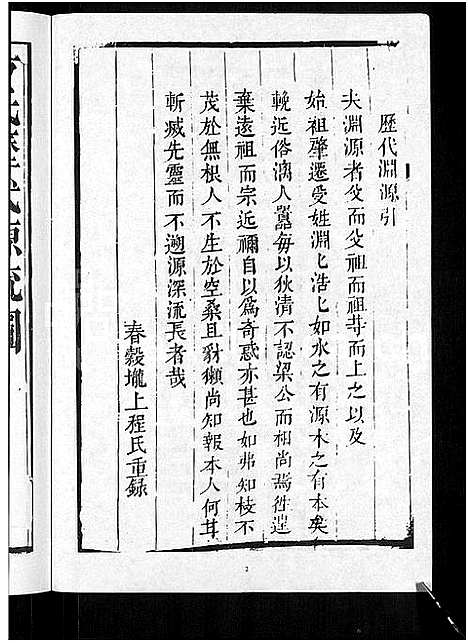 歷代淵源引
夫淵源者父而父祖而祖尋而上之以及
始祖肇遷受姓淵〻浩〻如水之有源木之有本矣
輓近俗漓人囂每以狄清不認梁公而相尚焉徃〻
棄遠祖而宗近禰自以爲奇惑亦甚也如弗知枝不
茂於無根人不生於空桑且豺獺尚知報本人何其
斬㓕先靈而不遡源深流長者哉
春穀壠上程氏重録
2